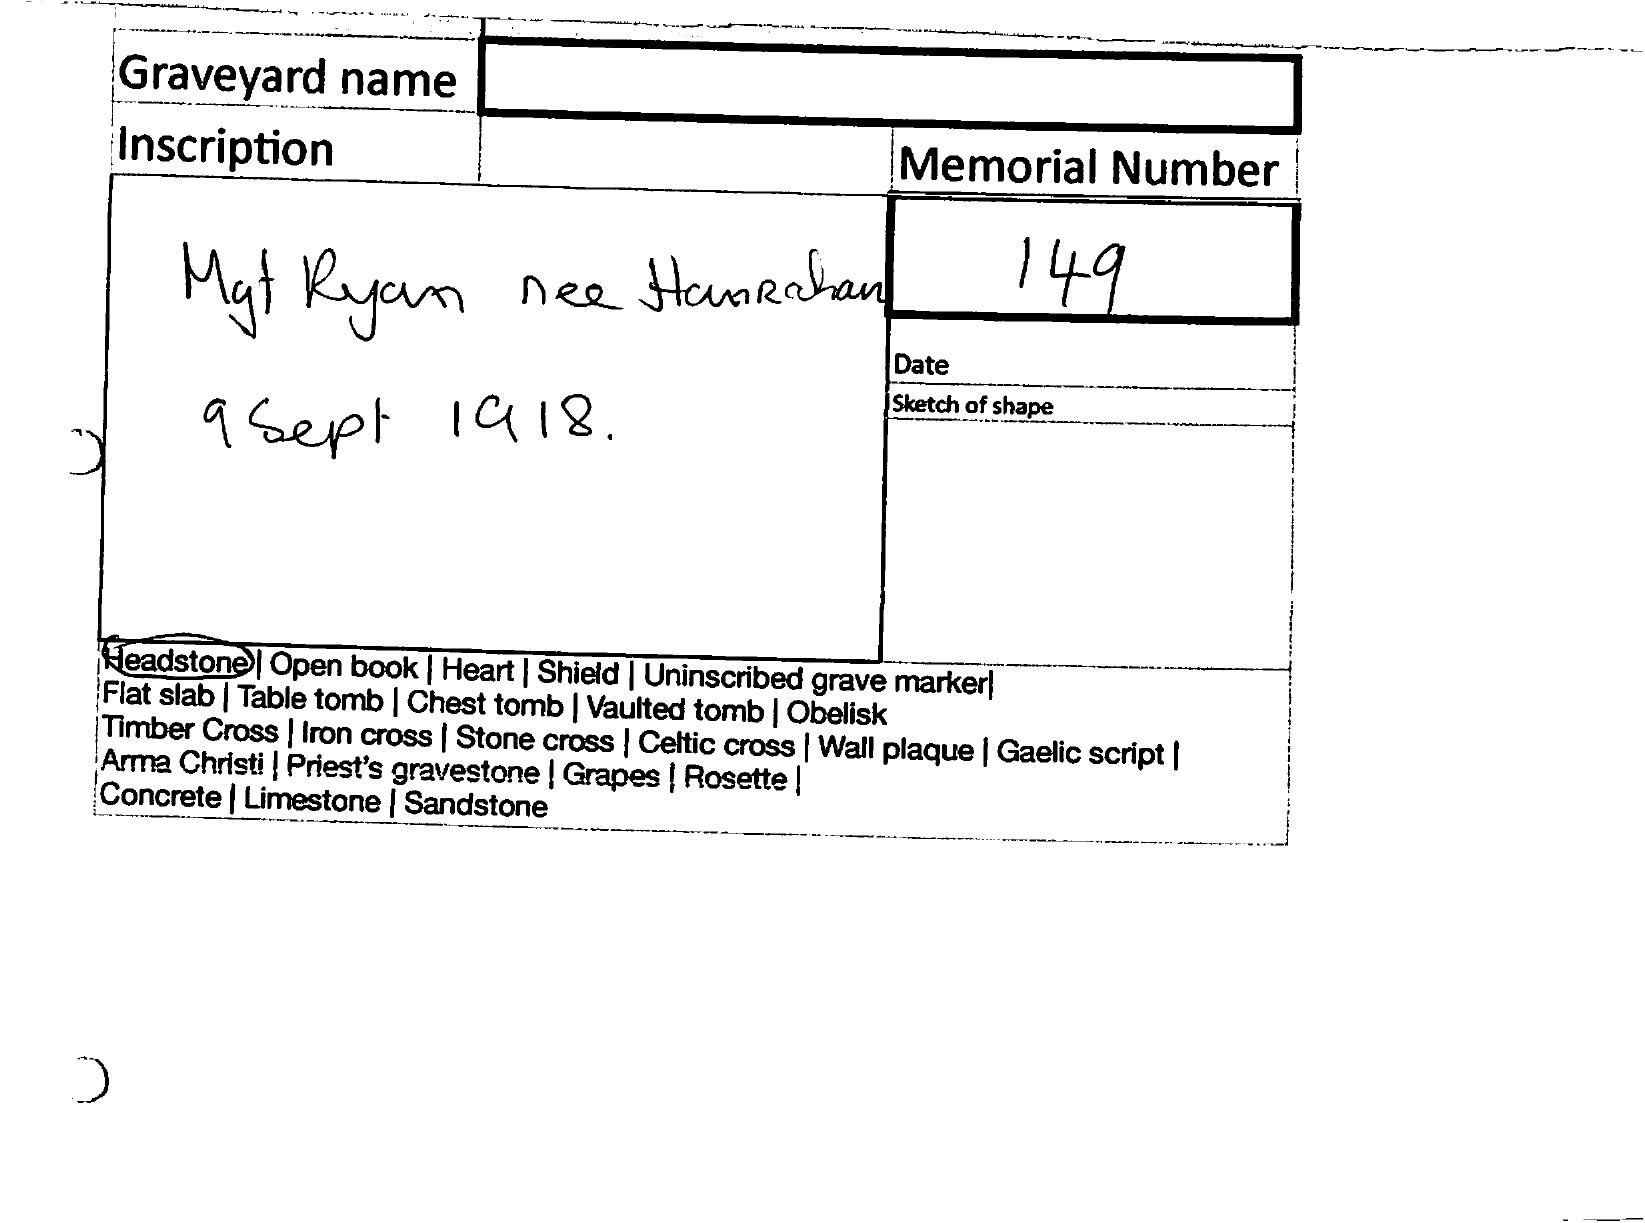 Graveyard name
Inscription
Memorial Number
Mgt Ryan nee Hanrahan
149
9 Sept 1918.
Date
Sketch of shape
Headstone | Open book | Heart | Shield | Uninscribed grave marker|
Flat slab | Table tomb | Chest tomb | Vaulted tomb | Obelisk
Timber Cross | Iron cross | Stone cross | Celtic cross | Wall plaque | Gaelic script |
Arma Christi | Priest's gravestone | Grapes | Rosette |
Concrete | Limestone | Sandstone